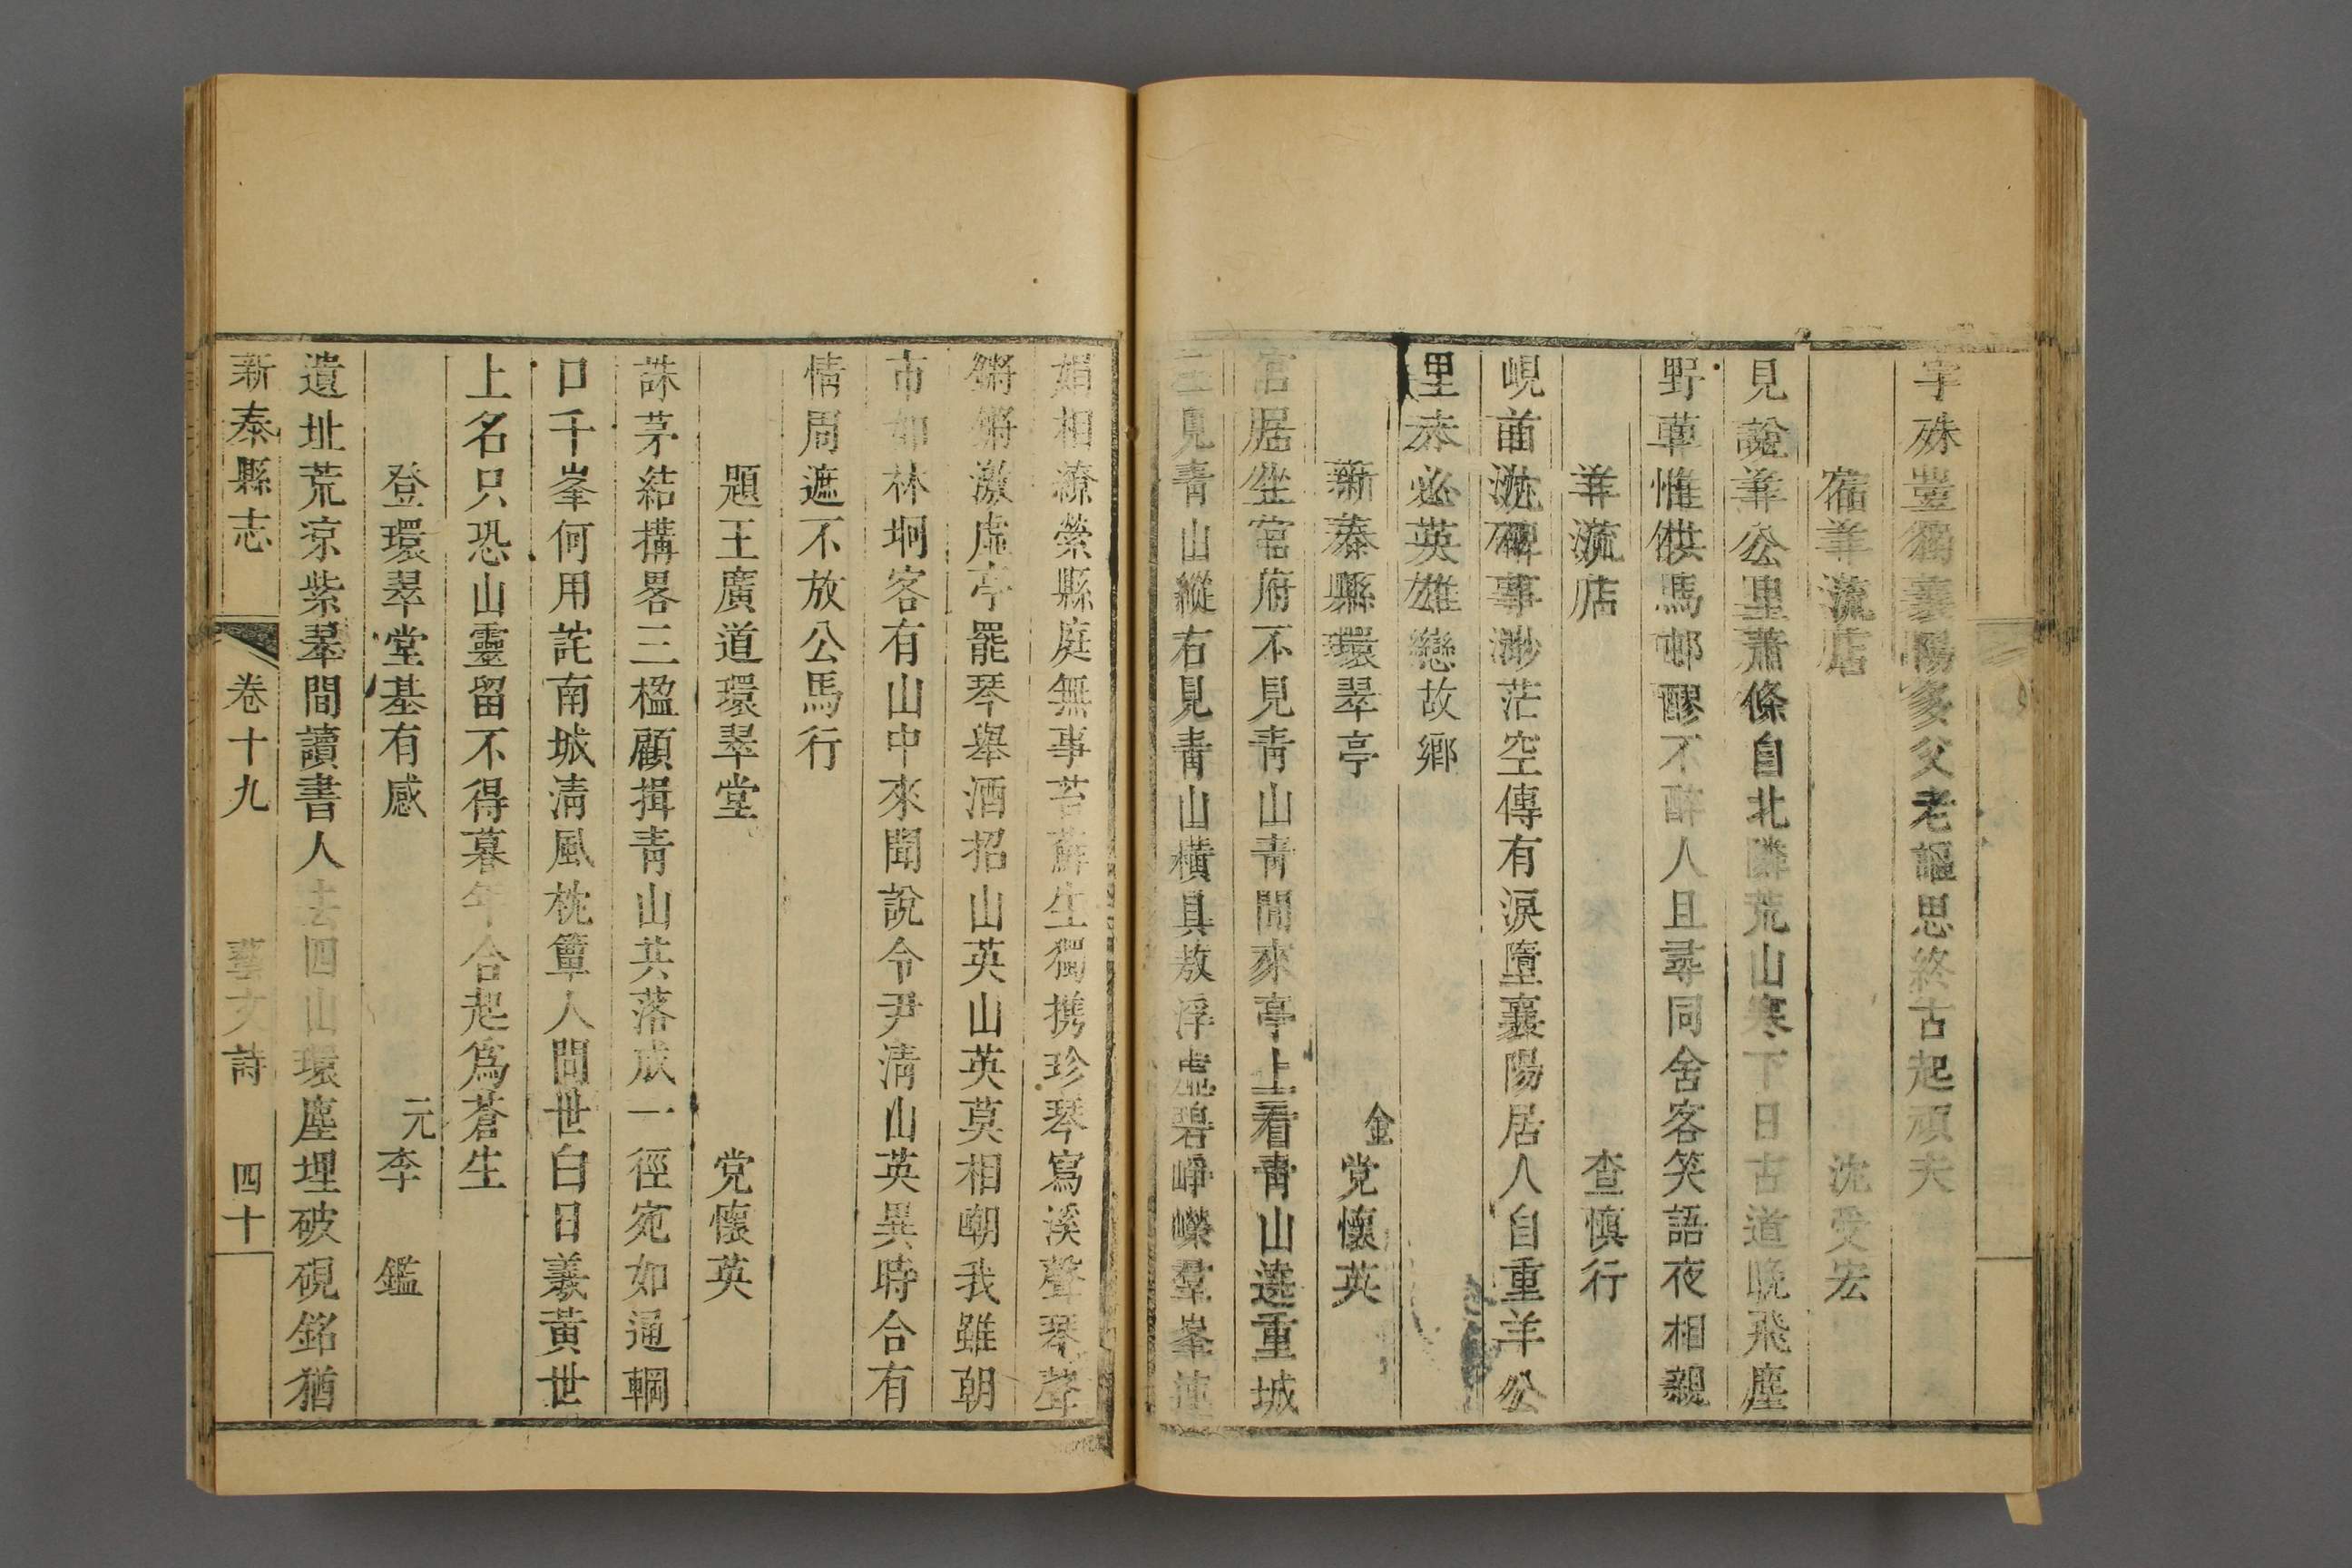 字殊豐獨襄陽多父老謳思終古起頑夫
宿羊流店 沈受宏
見說羊公里蕭條自北隣荒山寒下日古道晚飛塵
野草惟供馬邨醪不醉人且尋同舍客笑語夜相親
羊流店 查慎行
峴首沈碑事渺茫空傳有淚墮襄陽居人自重羊公
里未必英雄戀故鄉
新泰縣環翠亭 金党懷英
官居坐官府不見青山青閒來亭上看青山遶重城
左見青山縱右見青山橫具敖浮虛碧崢嶸羣峯連
娟相繚縈縣庭無事苔蘚生獨携珍琴寫溪聲琴聲
鏘鏘激虛亭罷琴舉酒招山英山英莫相嘲我雖朝
市如林坰客有山中來聞說令尹清山英異時合有
情周遮不放公馬行
題王廣道環翠堂 党懷英
誅茅結搆畧三楹顧揖青山共落成一徑宛如通輞
口千峯何用詫南城清風枕簟人間世白日羲黃世
上名只恐山靈留不得暮年合起爲蒼生
登環翠堂基有感 元李 鑑
遺址荒凉紫翠間讀書人去四山環塵埋破硯銘猶
新泰縣志 卷十九 藝文詩 四十